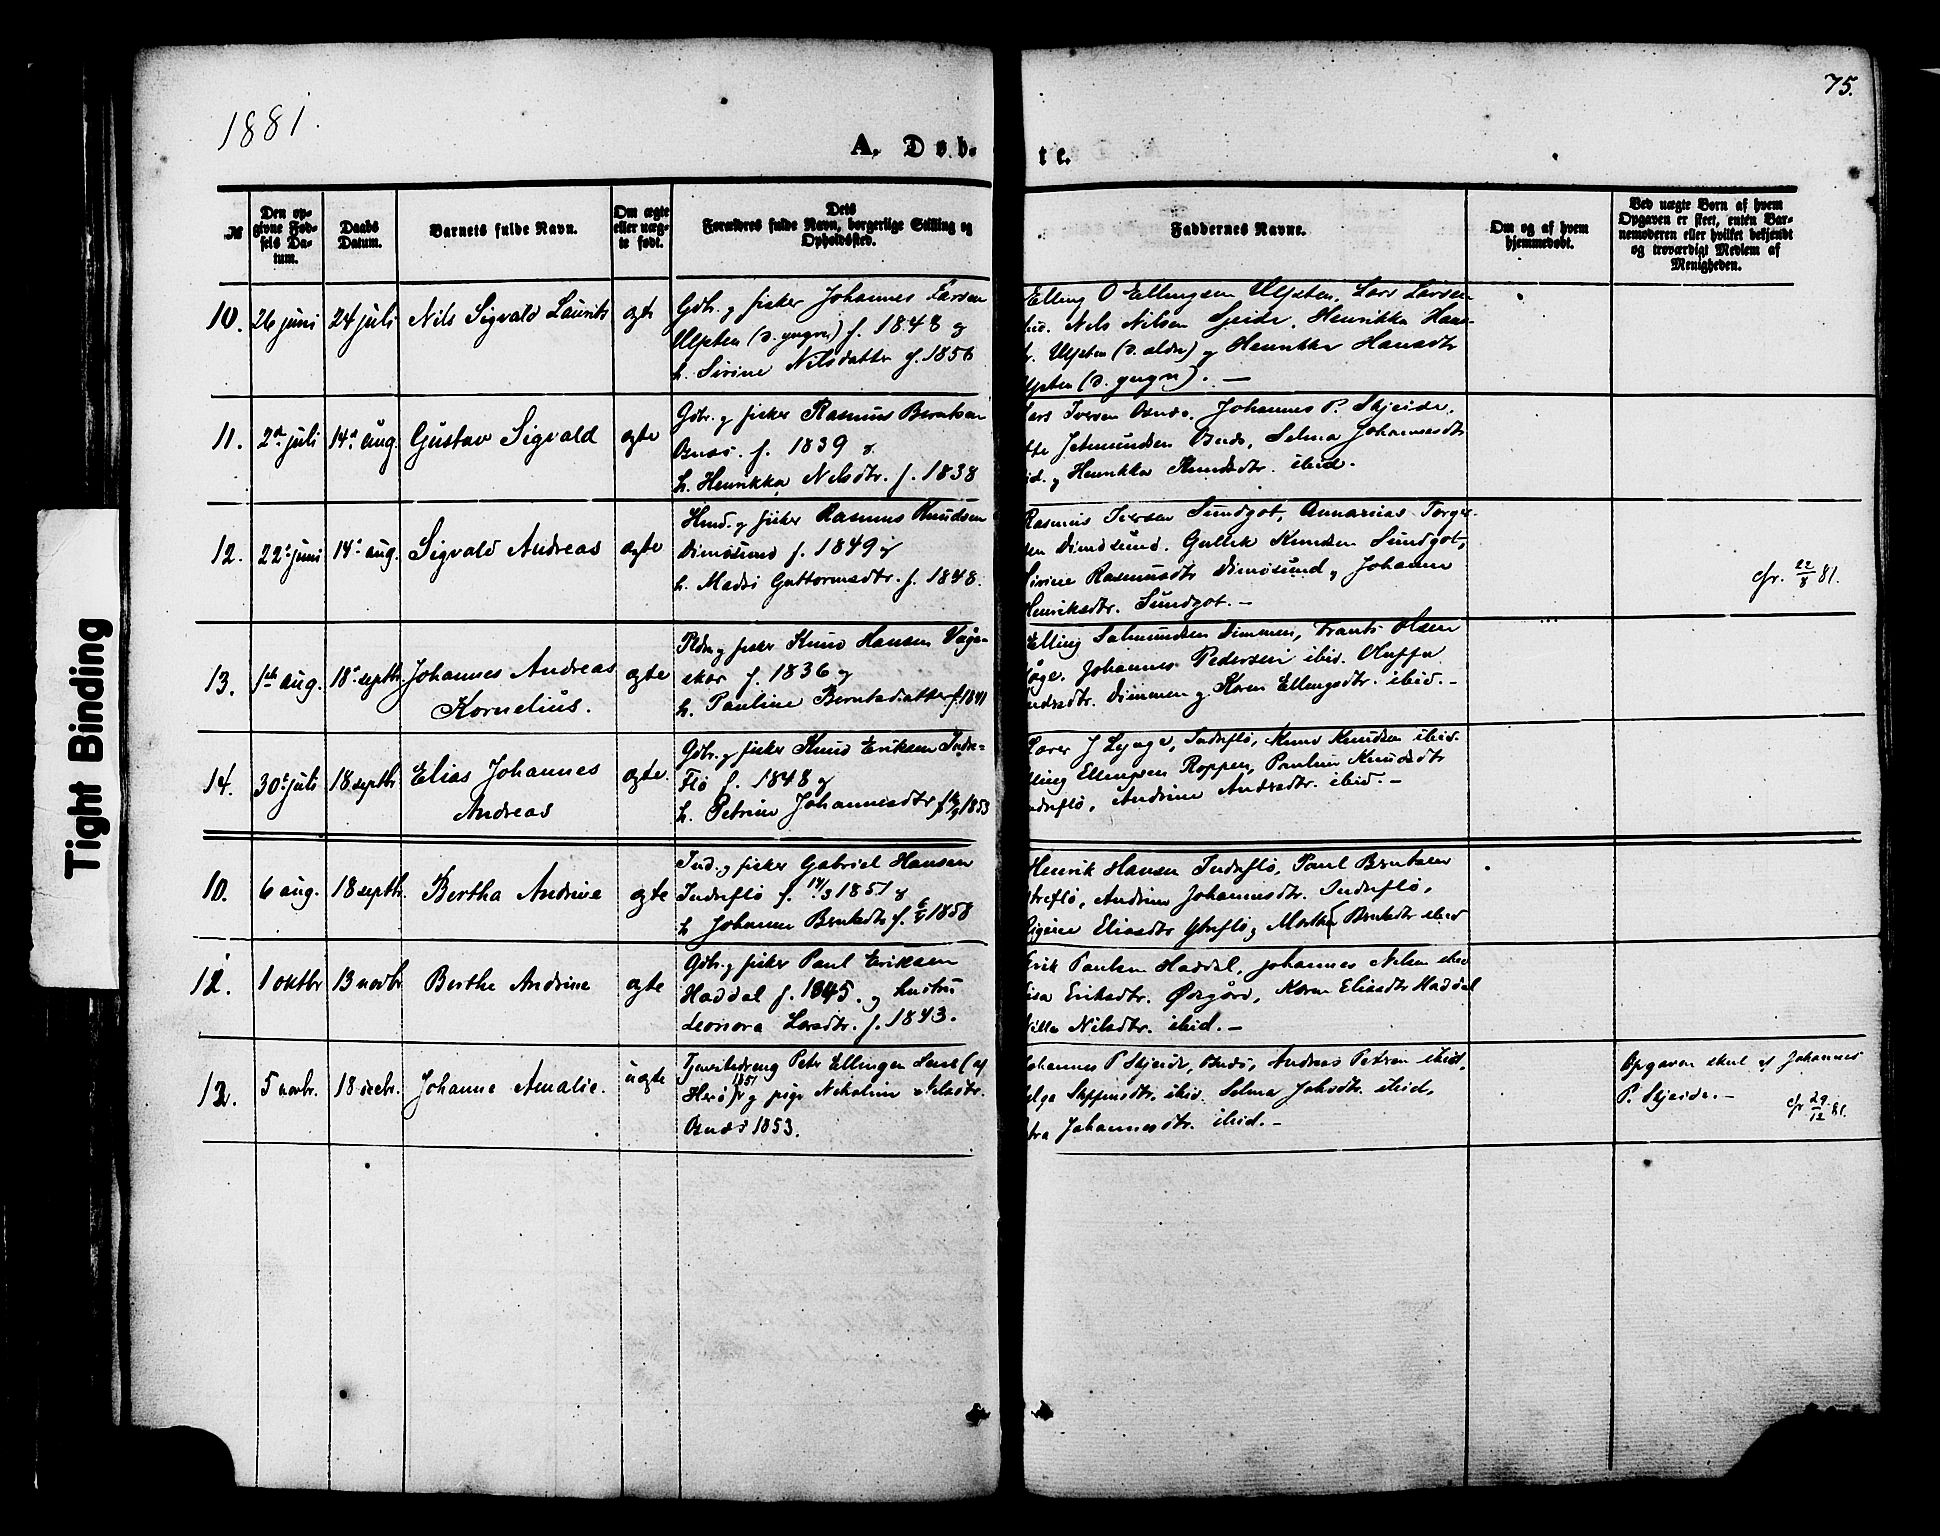 75.
1881.
A. Døb-
te.
№
Den op-
givne Fød-
sels Da-
tum.
Daabs
Datum.
Barnets fulde Navn.
Om ægte
eller uæg-
te født.
Dets
Forældres fulde Navn, borgerlige Stilling og
Opholdssted.
Faddernes Navne.
Om og af hvem
hjemmedøbt.
Ved uægte Børn af hvem
Opgaven er skeet, enten Bar-
nemoderen eller hvilket bekjendt
og troværdigt Medlem af
Menigheden.
10. 26 juni 24 juli Nils Sigvald Laurits ægte
Gdbr. og fisker Johannes Larsen
Ulsten (d. yngre) f. 1848 og
h. Sirine Nilsdatter f. 1856
Elling O Ellingsen Ulsten, Lars Larsen
ibid. Nels Nilsen Skeide, Henrikka Hans-
dtr. Ulsten (d. ældre) og Henrikke Hansdtr
Ulsten (d. yngre). —
11. 2d juli 14d aug. Gustav Sigvald ægte
Gdbr. og fisker Rasmus Berntsen
Osnes. f. 1839 og
h. Henrikka Nelsdtr. f. 1838
Lars Iversen Osnes, Johannes P. Skjeide,
Jetmundsen Osnes, Selma Johannesdtr
ibid. og Henrikka Knudsdtr. ibid.
12. 22d juni 14d aug. Sigvald Andreas ægte
Husmd. og fisker Rasmus Knudsen
Dimøsund f. 1849 og
h. Madsi Guttormsdtr. f. 1848.
Rasmus Iversen Sundgot, Annanias Torger-
sen Dimøsund, Gullik Knudsen Sundgot,
Sirine Rasmusdtr Dimøsund og Johanne
Henriksdtr. Sundgot. —
cfr. 22/8 81.
13. 1ste aug. 18d septbr Johannes Andreas
Kornelius. ægte
Pldsm. og fisker Knud Hansen Vaage-
skar f. 1836 og
h. Pauline Berntsdatter f. 1841
Elling Salmundsen Dimmen, Frants Olsen
Johannes Pedersen ibid. Oluffa
Knudsdtr. Dimmen og Karen Ellingsdtr. ibid. —
14. 30d juli 18 septbr Elias Johannes
Andreas ægte.
Gdbr. og fisker Knud Eriksen Indre-
Flø f. 1848 og
h. Petrine Johannesdtr 1853
J Lynge, Indreflø, Knud Knudsen ibid.
Elling Ellingsen Roppen, Pauline Knudsdtr
Indreflø, Andrine Andersdtr. ibid. —
10. 6 aug. 18 septbr. Bertha Andrine ægte
Ind. og fisker Gabriel Hansen
Indreflø f. 14/3 1851 og
h Johanne Berntsdtr f. 1858
Henrik Hansen Indreflø, Paul Berntsen
Ytreflø, Andrine Johannesdtr. Indreflø,
Eliasdtr Ytreflø og Martha Berntsdtr ibid
12. 1 oktbr 13 novbr Berthe Andrine ægte
Gdbr. og fisker Paul Eriksen
Haddal f. 1845. og hustru
Leonora Larsdtr. f. 1843.
Erik Paulsen Haddal, Johannes Nelsen ibid
Eriksdtr. Øsgård, Karen Eliasdtr Haddal
Nilsdtr. ibid. —
12. 5 novbr. 18 decbr. Johanne Amalie. uægte
Tjenestedreng Peter Ellingsen (af
Herø) 1851 og pige Nikoline Nelsdtr.
Osnes 1853.
Johannes P Skjeide, Osnes, Andreas Petersen ibid,
Helga Steffensdtr. ibid. Selma Johsdtr. ibid,
Johannesdtr. ibid. —
Opgaven skeet af Johannes
P. Skjeide. — cfr 29/12 81.
Tight Binding